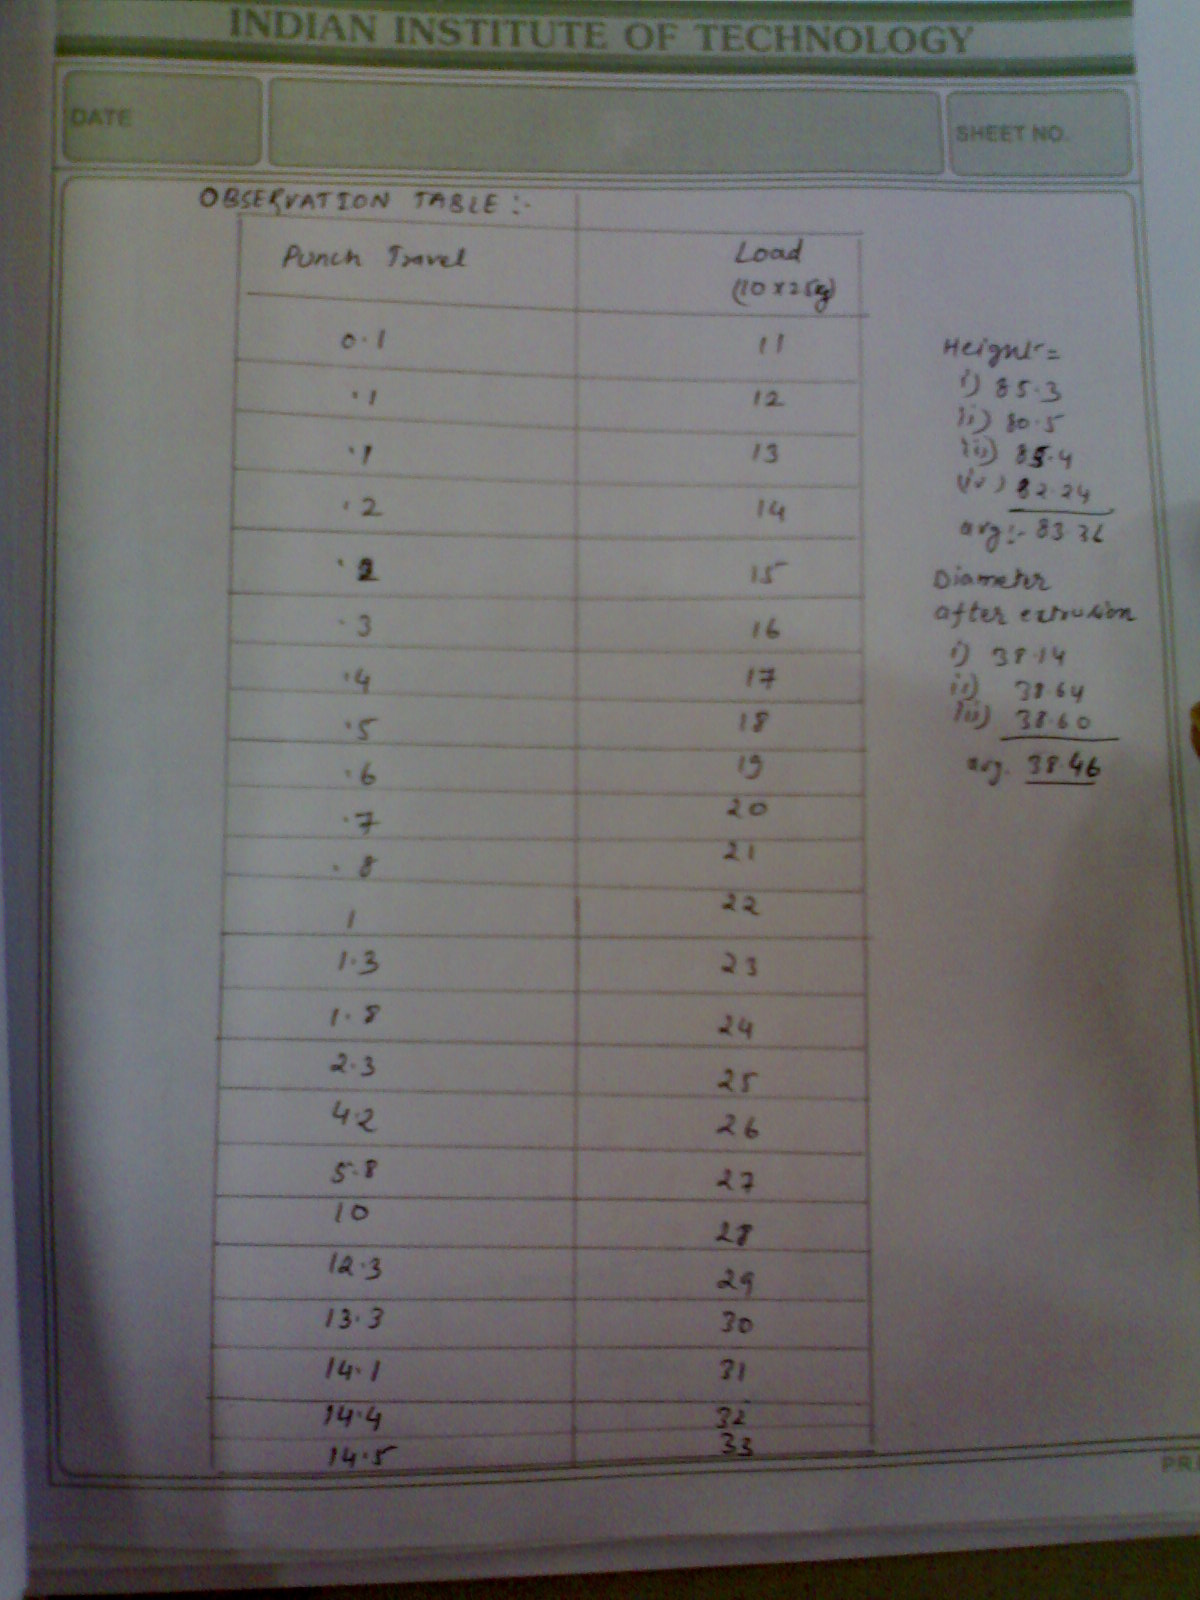 INDIAN INSTITUTE OF TECHNOLOGY
DATE
SHEET NO.
OBSERVATION TABLE :-
Punch Travel Load
(10 x 25kg)
0.1 11
.1 12
.1 13
.2 14
.2 15
.3 16
.4 17
.5 18
.6 19
.7 20
.8 21
1 22
1.3 23
1.8 24
2.3 25
4.2 26
5.8 27
10 28
12.3 29
13.3 30
14.1 31
14.4 32
14.5 33
Height =
i) 85.3
ii) 80.5
iii) 85.4
iv) 82.24
avg :- 83.36
Diameter
after extrusion
i) 38.14
ii) 38.64
iii) 38.60
avg. 38.46